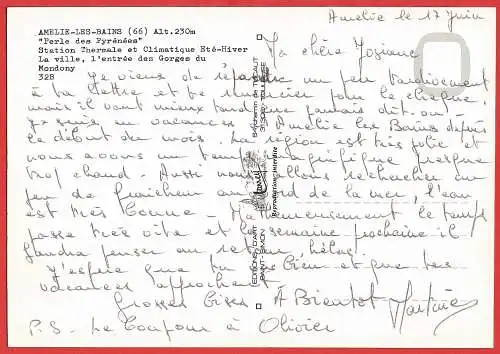 AMELIE-LES-BAINS (66) Alt.230m
"Perle des Pyrénées"
Station Thermale et Climatique Eté-Hiver
La ville, l'entrée des Gorges du
Mondony
32B
Amélie le 17 Juin
Ma chère Josiane
Je viens de répondre un peu tardivement
à ta lettre et te remercier pour le chèque,
mais il vaut mieux tard que jamais dit-on !
Je suis en vacances à Amélie les Bains depuis
le début du mois. La région est très jolie et
nous avons un temps magnifique presque
trop chaud. Aussi nous allons rechercher un
peu de fraîcheur au bord de la mer, l'eau
est très bonne. Malheureusement le temps
passe très vite et la semaine prochaine il
faudra penser au retour hélas !
J'espère que tu vas bien et que tes
vacances approchent
Grosses bises À Bientôt Martine
P.S. Le Bonjour à Olivier
Reproduction interdite